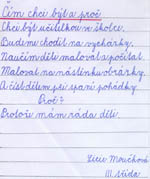 Čím chci být a proč
Chci být učitelkou ve školce.
Budeme chodit na vycházky.
Naučím děti malovat a počítat.
Malovat na nástěnku obrázky.
A číst dětem pro spaní pohádky.
Proč?
Protože mám ráda děti.
Lucie Moučková
III. třída